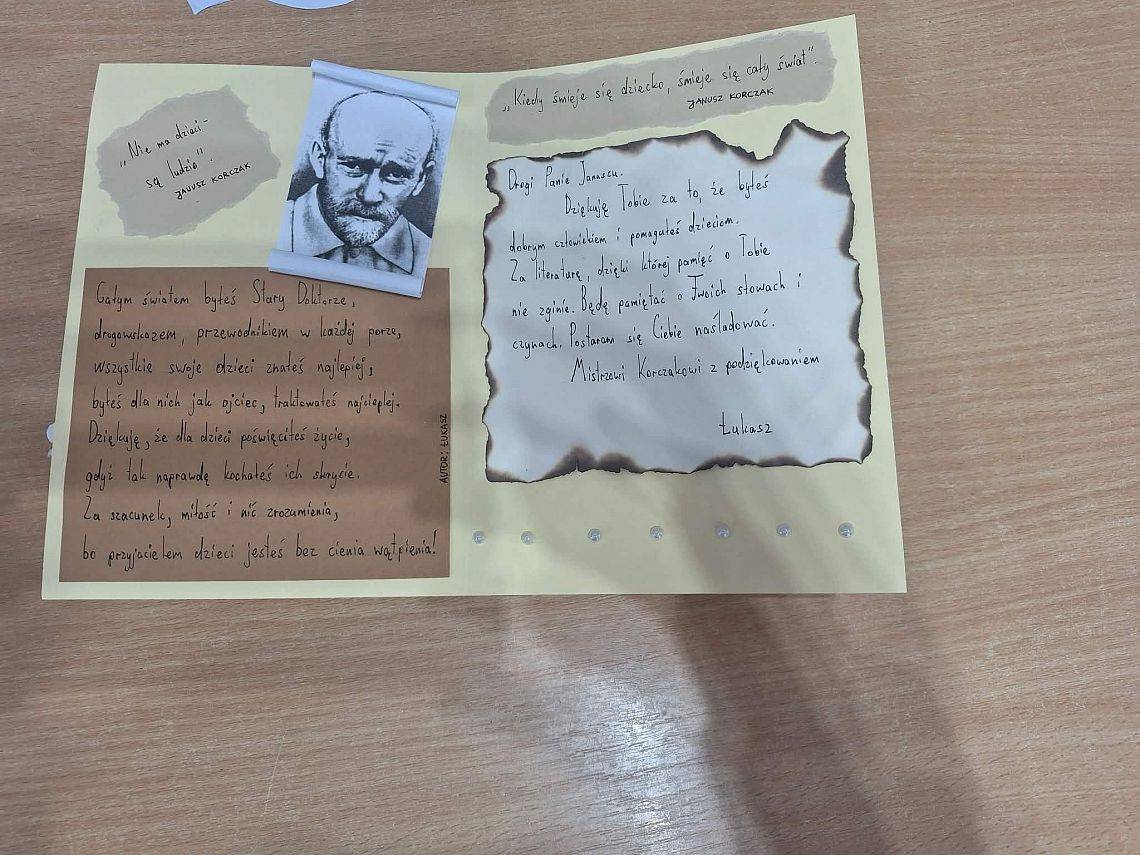 „Nie ma dzieci -
są ludzie".
JANUSZ KORCZAK
Całym światem byłeś Stary Doktorze,
drogowskazem, przewodnikiem w każdej porze,
wszystkie swoje dzieci znałeś najlepiej,
byłeś dla nich jak ojciec, traktowałeś najcieplej.
Dziękuję, że dla dzieci poświęciłeś życie,
gdyż tak naprawdę kochałeś ich skrycie.
Za szacunek, miłość i nić zrozumienia,
bo przyjacielem dzieci jesteś bez cienia wątpienia!
AUTOR: ŁUKASZ
„Kiedy śmieje się dziecko, śmieje się cały świat".
JANUSZ KORCZAK
Drogi Panie Januszu.
Dziękuję Tobie za to, że byłeś
dobrym człowiekiem i pomagałeś dzieciom.
Za literaturę, dzięki której pamięć o Tobie
nie zginie. Będę pamiętać o Twoich słowach i
czynach. Postaram się Ciebie naśladować.
Mistrzowi Korczakowi z podziękowaniem
Łukasz